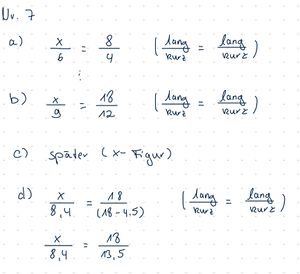 Nr. 7
a) x/6 = 8/4 (lang/kurz = lang/kurz)
⋮
b) x/9 = 18/12 (lang/kurz = lang/kurz)
c) später (x-Figur)
d) x/8,4 = 18/(18-4.5) (lang/kurz = lang/kurz)
x/8,4 = 18/13,5